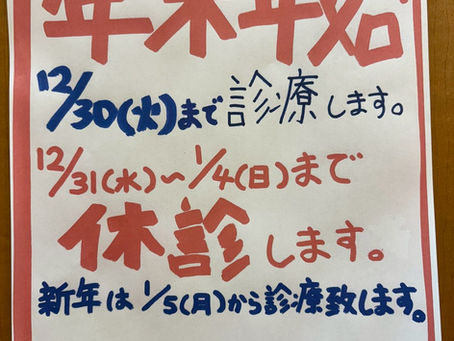 年末年始
12/30(火)まで診療します。
12/31(水)〜1/4(日)まで
休診します。
新年は1/5(月)から診療致します。